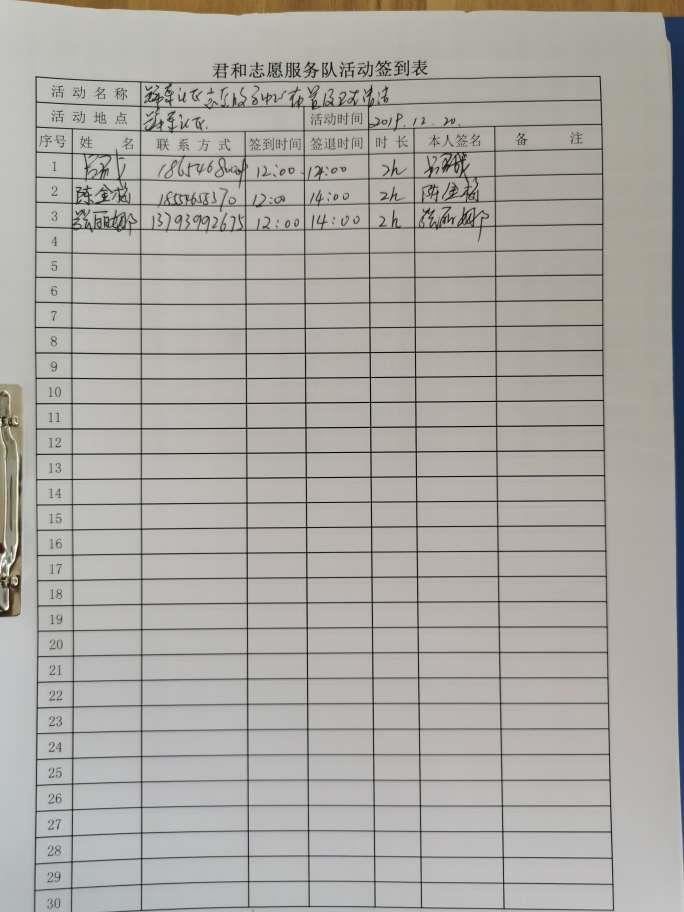 君和志愿服务队活动签到表
活动名称
活动地点 活动时间 2019.12.20.
序号 姓名 联系方式 签到时间 签退时间 时长 本人签名 备注
1 12:00 14:00 2h
2 陈金梅 18554658370 12:00 14:00 2h 陈金梅
3 张丽娜 13793992675 12:00 14:00 2h 张丽娜
4
5
6
7
8
9
10
11
12
13
14
15
16
17
18
19
20
21
22
23
24
25
26
27
28
29
30